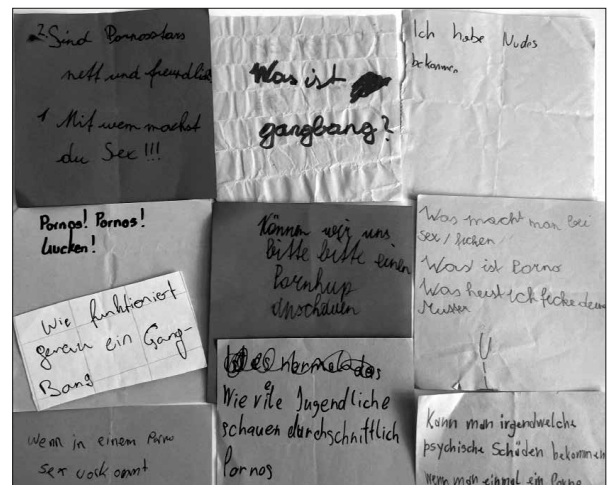 2. Sind Pornostars
nett und freundlich
1 Mit wem machst
du Sex !!!
Was ist
gangbang?
Ich habe Nudes
bekommen
Pornos! Pornos!
Gucken!
Können wir uns
bitte bitte einen
Pornhup
anschauen
Was macht man bei
sex / ficken
Was ist Porno
Was heist ich ficke deine
Mutter
Wie funktioniert
genau ein Gang-
Bang
normal das
Wie vile Jugendliche
schauen durchschnittlich
Pornos
Wenn in einem Porno
sex vorkommt
Kann man irgendwelche
psychische Schäden bekommen
wenn man einmal ein Porno